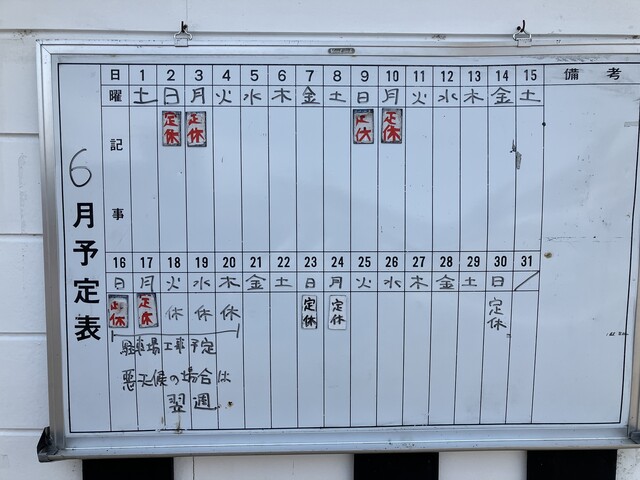 日 1 2 3 4 5 6 7 8 9 10 11 12 13 14 15 備考
曜 土 日 月 火 水 木 金 土 日 月 火 水 木 金 土
定休 定休 定休 定休
記事
6月予定表
16 17 18 19 20 21 22 23 24 25 26 27 28 29 30 31
日 月 火 水 木 金 土 日 月 火 水 木 金 土 日
定休 定休 休 休 休 定休 定休 定休
駐車場工事予定
悪天候の場合は
翌週